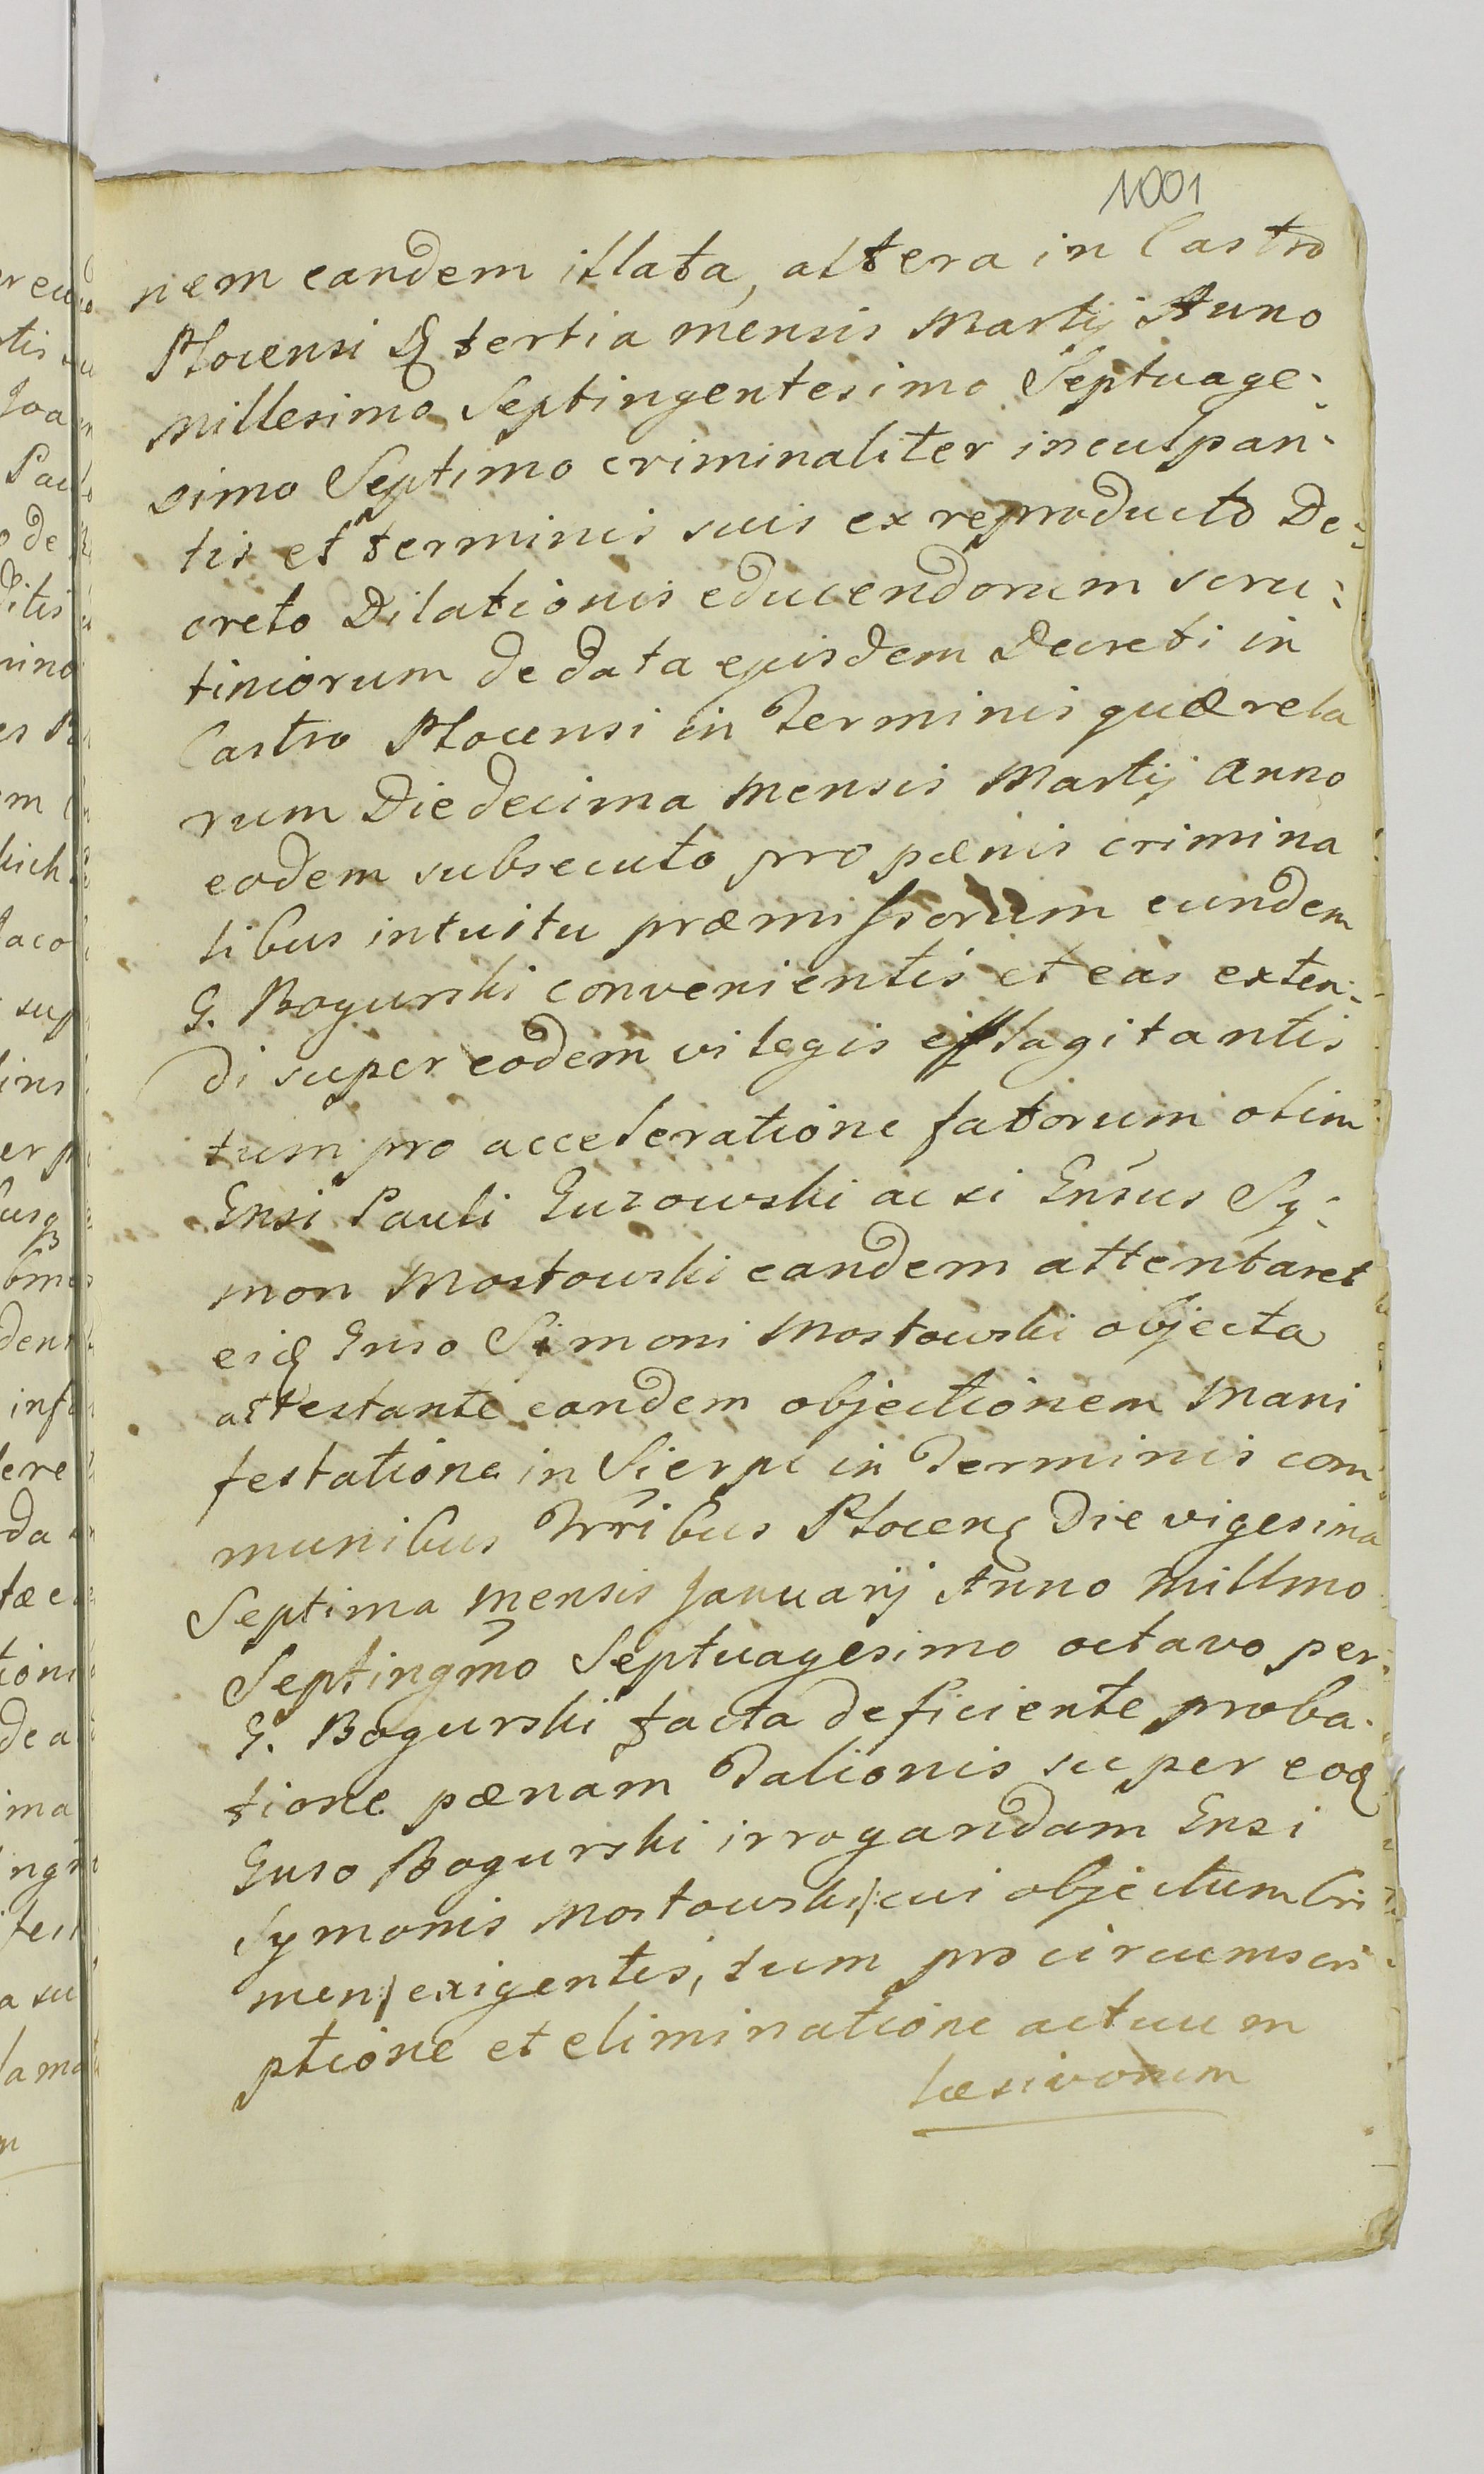 1001
nem eandem illata, altera in Castro
Plocensi D tertia mensis Martij Anno
Millesimo Septingentesimo Septuage-
simo Septimo criminaliter inculpan-
tis et terminis suis ex reproducto De-
creto Dilationis educendorum scru-
tiniorum de data ejusdem Decreti in
Castro Plocensi in Terminis quærela
rum Die decima Mensis Martij Anno
eodem subsecuto pro pænis crimina
libus intuitu præmissorum eundem
G. Bogurski convenientis et eas exten-
di super eodem vi legis efflagitantis
tum pro acceleratione fatorum olim
Gnsi Pauli Guzowski ac si Gnsus Sy-
mon Mostowski eandem attentaret
eidq Gnso Simoni Mostowski objecta
attestante eandem objectionem Mani
festatione in Sierpc in Terminis com
munibus Trribus Plocen Die vigesima
Septima Mensis Januarij Anno Millmo
Septingmo Septuagesimo octavo per
G. Bogurski facta deficiente proba-
tione pænam Talionis super eod
Gnso Bogurski irrogandam Gnsi
Symonis Mostowski /: cui objectum Cri
men :/ exigentis, tum pro circumscri-
ptione et eliminatione actuum
læsivorum